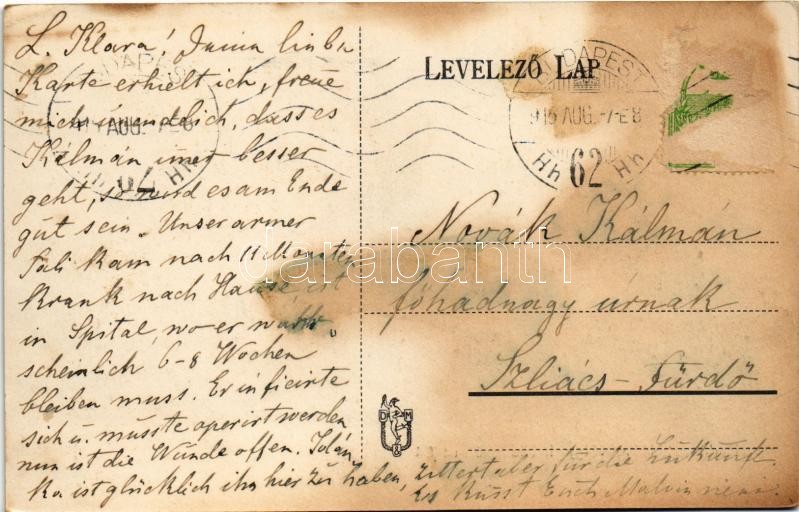 L. Klara! Deine liebe
Karte erhielt ich, freue
mich unendlich, dass es
Kálmán imer besser
geht, so wird es am Ende
gut sein. Unser armer
kam nach 11 Monaten
krank nach Hause ist
in Spital, wo er wahr-
scheinlich 6-8 Wochen
bleiben muss. Er inficirte
sich u. musste operirt werden
nun ist die Wunde offen. Ilon
ka ist glücklich ihn hier zu haben, zittert aber für die Zukunft
Es küsst Euch Malvin néni.
LEVELEZŐ LAP
BUDAPEST
915 AUG. -7. E 8
Hh 62 Hh
BUDAPEST
AUG. -7. E 8
62 Hh
Novák Kálmán
főhadnagy úrnak
Szliács-Fürdő
D M
darabanth